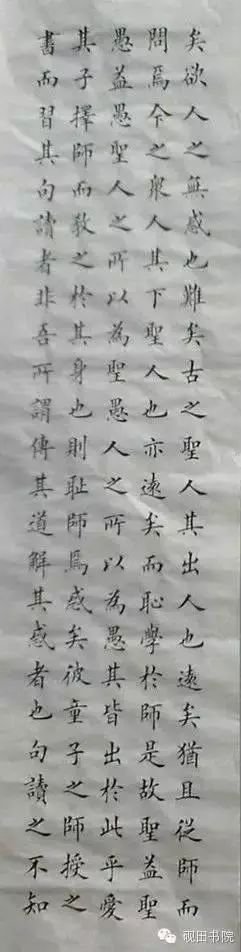 矣欲人之無惑也難矣古之聖人其出人也遠矣猶且從師而
問焉今之衆人其下聖人也亦遠矣而恥學於師是故聖益聖
愚益愚聖人之所以為聖愚人之所以為愚其皆出於此乎愛
其子擇師而教之於其身也則恥師焉惑矣彼童子之師授之
書而習其句讀者非吾所謂傳其道解其惑者也句讀之不知
砚田书院